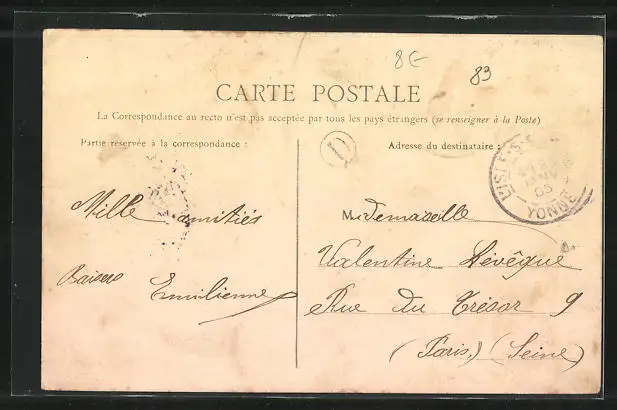 8€
83
CARTE POSTALE
La Correspondance au recto n'est pas acceptée par tous les pays étrangers (se renseigner à la Poste)
Partie réservée à la correspondance :
Adresse du destinataire :
D
YONNE
05
Mille amitiés
Baisers Emilienne
Mademoiselle
Valentine Levêque
Rue du Trésor 9
(Paris.) (Seine)